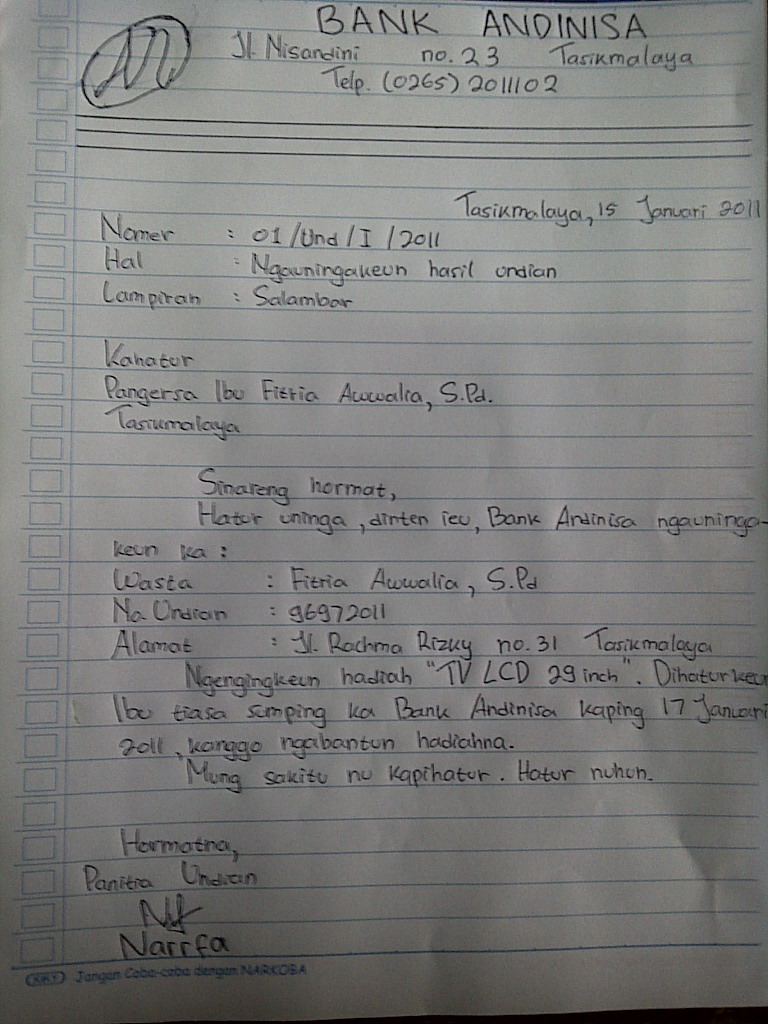 BANK ANDINISA
Jl. Nisandini no. 23 Tasikmalaya
Telp. (0265) 2011102
Tasikmalaya, 15 Januari 2011
Nomer : 01/Und/I/2011
Hal : Ngauningakeun hasil undian
Lampiran : Salambar
Kahatur
Pangersa Ibu Fitria Awwalia, S.Pd.
Tasikmalaya
Sinareng hormat,
Hatur uninga, dinten ieu, Bank Andinisa ngauninga-
keun ka :
Wasta : Fitria Awwalia, S.Pd
No. Undian : 96972011
Alamat : Jl. Rachma Rizky no. 31 Tasikmalaya
Ngengingkeun hadiah "TV LCD 29 inch". Dihaturkeun
Ibu tiasa sumping ka Bank Andinisa kaping 17 Januari
2011, kanggo ngabantun hadiahna.
Mung sakitu nu kapihatur. Hatur nuhun.
Hormatna,
Panitia Undian
Narrfa
KKY Jangan Coba-coba dengan NARKOBA